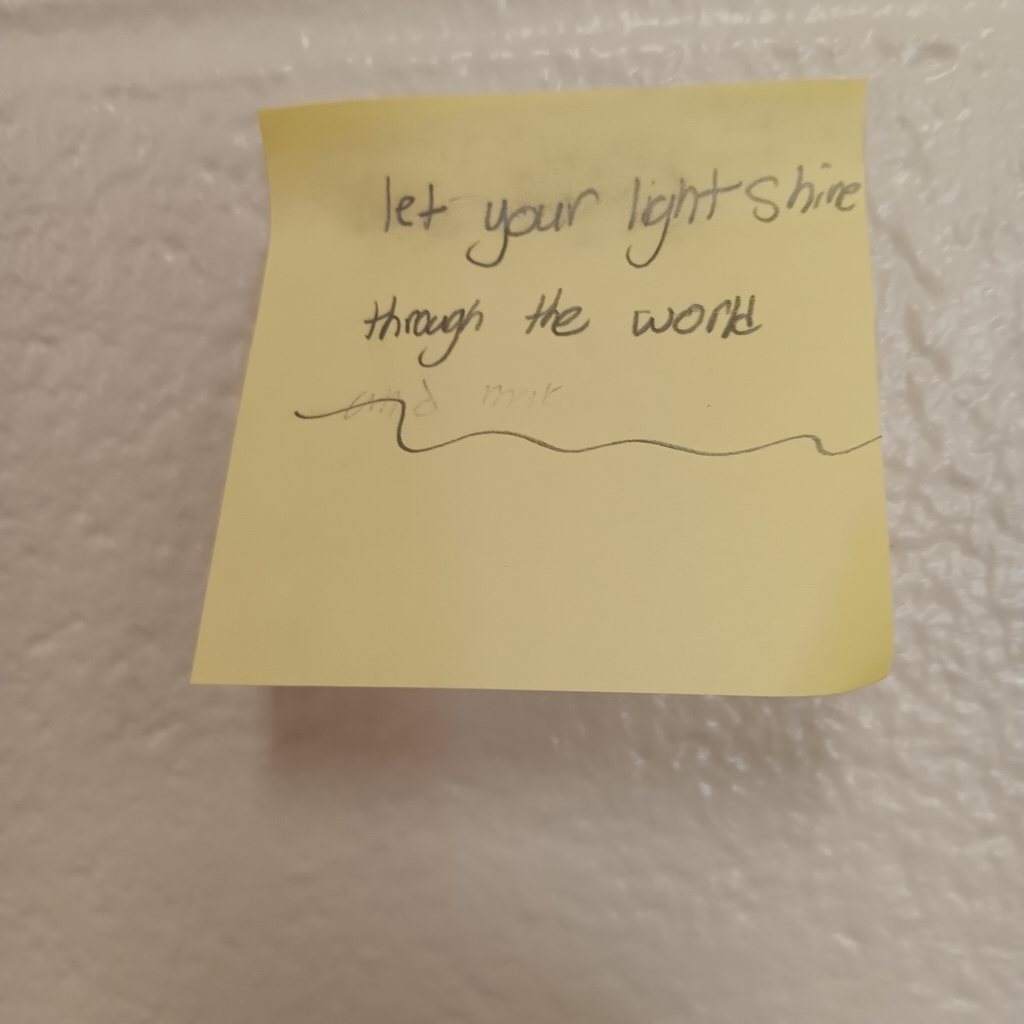 let your light shine
through the world
and mar